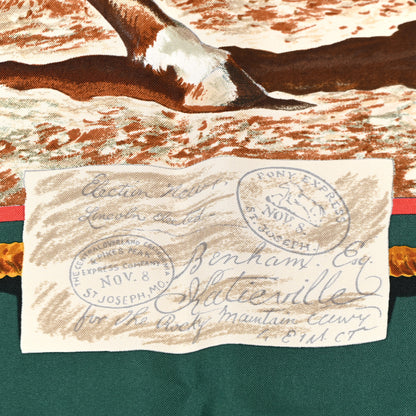 Election news
Lincoln Elected
PONY EXPRESS
NOV. 8
ST JOSEPH.
THE CENTRAL OVERLAND CALIFORNIA
& PIKES PEAK
EXPRESS COMPANY
NOV. 8
ST JOSEPH, MO.
Benham. Esq.
for the Rocky Mountain